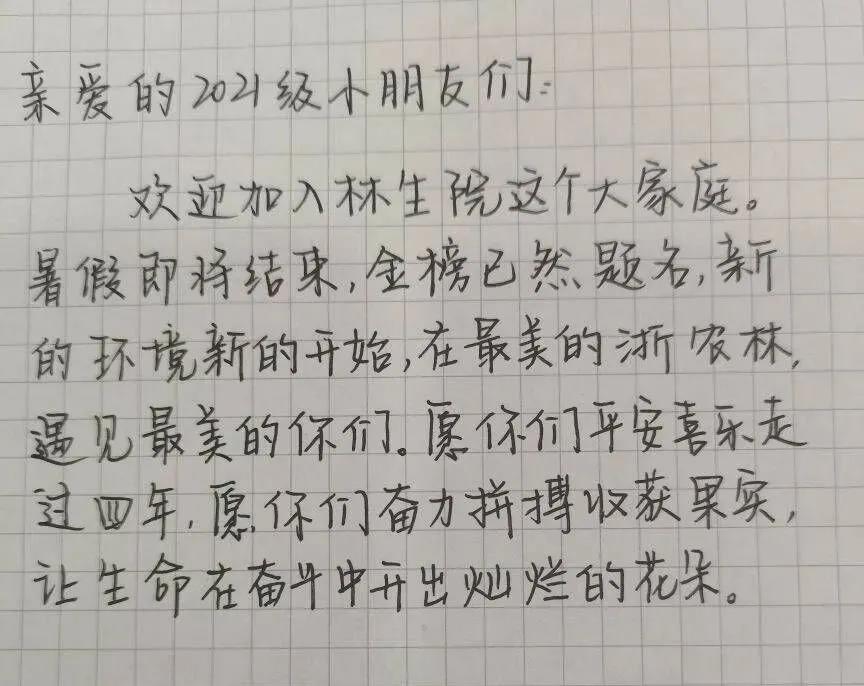 亲爱的2021级小朋友们:
欢迎加入林生院这个大家庭。
暑假即将结束,金榜已然题名,新
的环境新的开始,在最美的浙农林,
遇见最美的你们。愿你们平安喜乐走
过四年,愿你们奋力拼搏收获果实,
让生命在奋斗中开出灿烂的花朵。